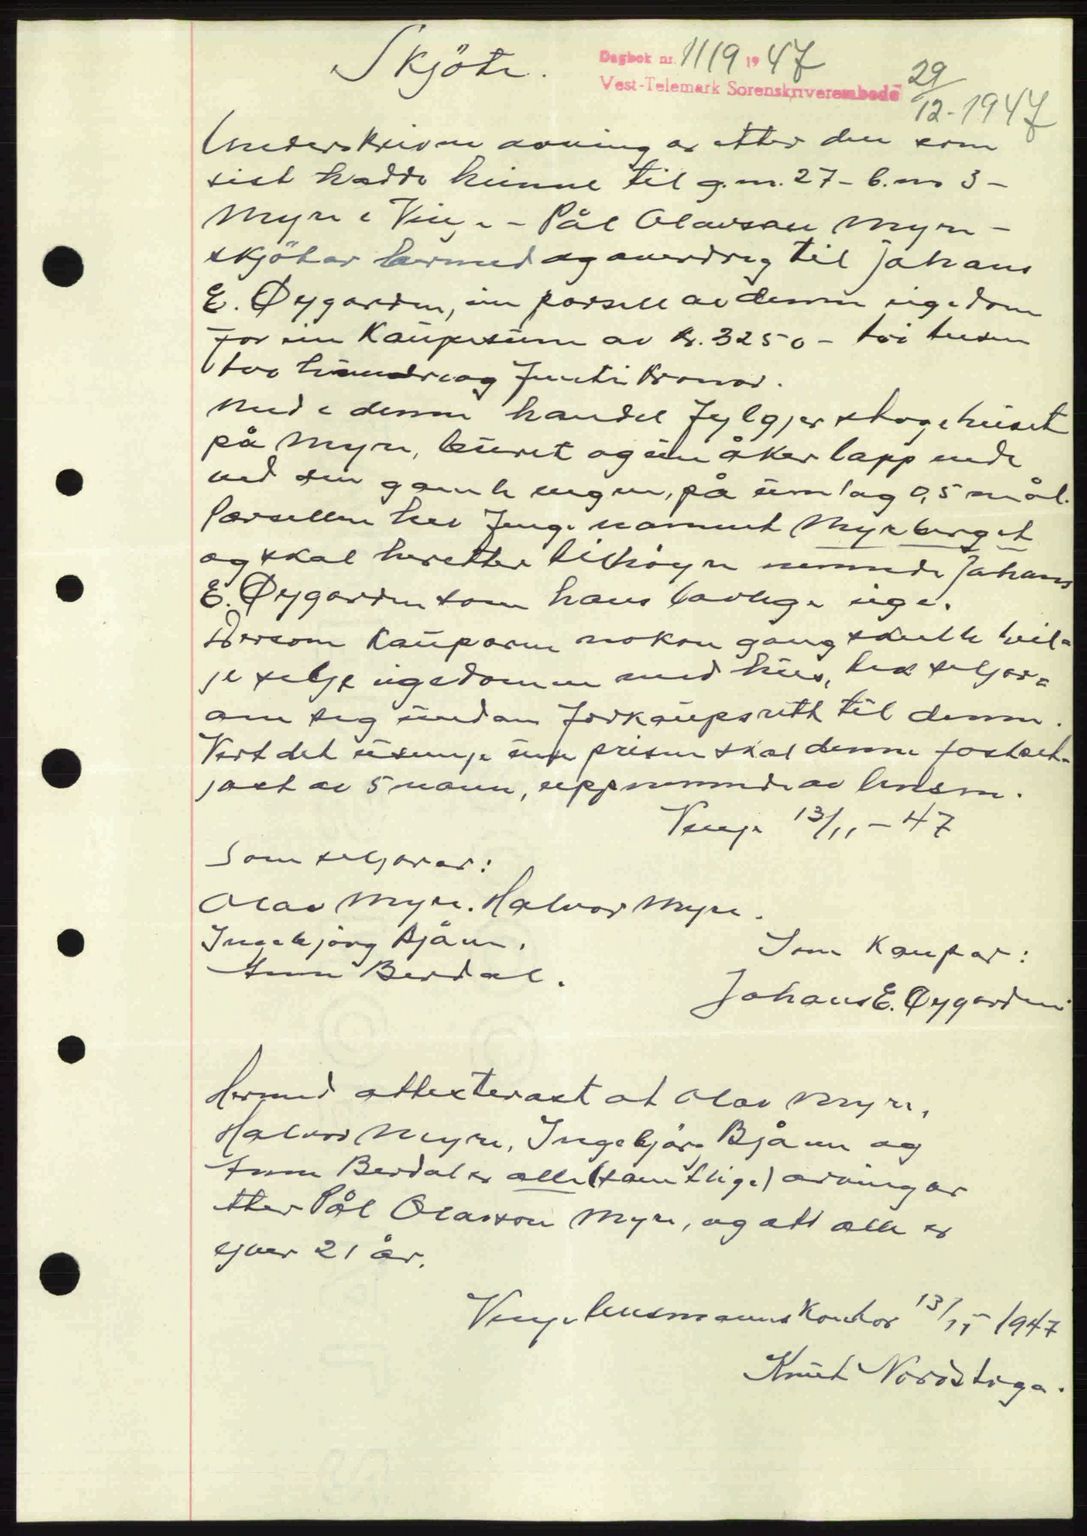 Skjöte.
Dagbok nr. 1119 1947
Vest-Telemark Sorenskriverembede
29/12-1947
Underskrivne arvingar etter den som
sist hadde heimel til g.nr. 27 - b.nr 3 -
Myre i Vinje - Pål Olavson Myre -
skjötar hermed og averdreg til Johans
E. Øygarden, ein parsell av denne eigedom
for ein kaupesum av kr. 3250 - tri tusen
tvo hundre og femti kronor.
Med i denne handel fylgjer stogehuset
på Myre, buret og ein åkerlapp nede
ved den gamle vegen, på umlag 0,5 mål.
Parsellen hev fenge namnet Myrberget
og skal heretter tilhöyre nemnde Johans
E. Øygarden som hans lovlege eige.
Dersom kauparen nokon gong skulle vil-
je selje eigedomen med hus, hev seljar-
ane seg undan forkaupsrett til denne.
Vert det usemje um prisen skal denne fastset-
jast av 5 mann, uppnemnde av lensm.
Vinje 13/11 - 47
Som seljarar:
Olav Myre. Halvor Myre.
Ingebjörg Bjåen.
Som kaupar:
Anne Berdal.
Johans E. Øygarden
Hermed attesterast at Olav Myre,
Halvor Myre, Ingebjörg Bjåen og
Anne Berdal er alle (samtlige) arvingar
etter Pål Olavson Myre, og att alle er
yver 21 år.
Vinje lensmannskontor 13/11 1947
Knut Nordstoga.